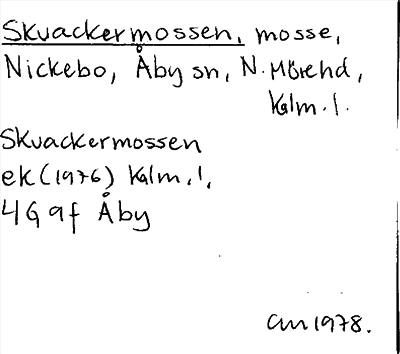 Skvackermossen, mosse,
Nickebo, Åby sn, N. Möre hd,
Kalm. l.
Skvackermossen
ek (1976) Kalm. l.
4G 9f Åby
am 1978.